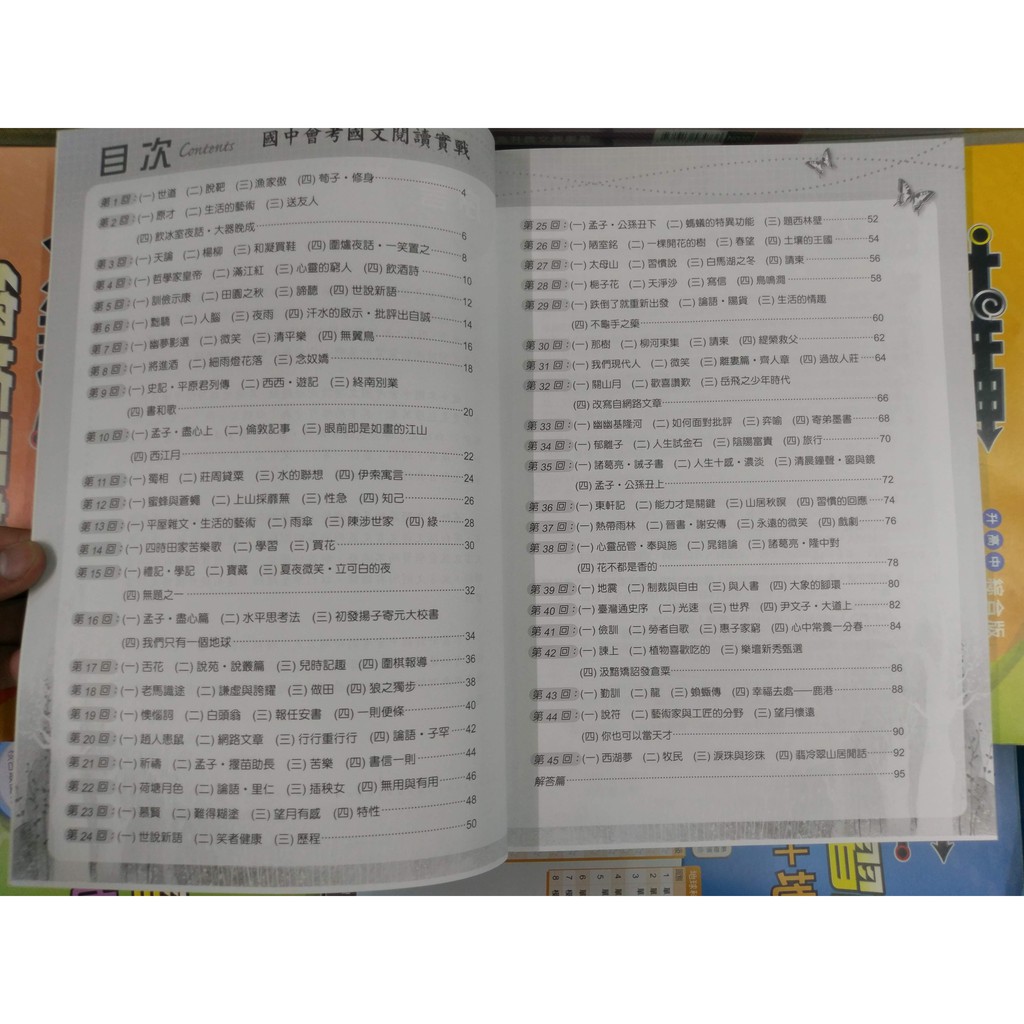 目次 Contents 國中會考國文閱讀實戰
第1回:(一)世道 (二)說靶 (三)漁家傲 (四)荀子・修身 4
第2回:(一)原才 (二)生活的藝術 (三)送友人
(四)飲冰室夜話・大器晚成 6
第3回:(一)天論 (二)楊柳 (三)和凝買鞋 (四)圍爐夜話・一笑置之 8
第4回:(一)哲學家皇帝 (二)滿江紅 (三)心靈的窮人 (四)飲酒詩 10
第5回:(一)訓儉示康 (二)田園之秋 (三)諦聽 (四)世說新語 12
第6回:(一)勉驕 (二)人腦 (三)夜雨 (四)汗水的啟示・批評出自誠 14
第7回:(一)幽夢影選 (二)微笑 (三)清平樂 (四)無翼鳥 16
第8回:(一)將進酒 (二)細雨燈花落 (三)念奴嬌 18
第9回:(一)史記・平原君列傳 (二)西西・遊記 (三)終南別業
(四)書和歌 20
第10回:(一)孟子・盡心上 (二)倫敦記事 (三)眼前即是如畫的江山
(四)西江月 22
第11回:(一)蜀相 (二)莊周貸粟 (三)水的聯想 (四)伊索寓言 24
第12回:(一)蜜蜂與蒼蠅 (二)上山採蘼蕪 (三)性急 (四)知己 26
第13回:(一)平屋雜文・生活的藝術 (二)雨傘 (三)陳涉世家 (四)綠 28
第14回:(一)四時田家苦樂歌 (二)學習 (三)買花 30
第15回:(一)禮記・學記 (二)寶藏 (三)夏夜微笑・立可白的夜
(四)無題之一 32
第16回:(一)孟子・盡心篇 (二)水平思考法 (三)初發揚子寄元大校書
(四)我們只有一個地球 34
第17回:(一)舌花 (二)說苑・說叢篇 (三)兒時記趣 (四)圍棋報導 36
第18回:(一)老馬識途 (二)謙虛與誇耀 (三)做田 (四)狼之獨步 38
第19回:(一)懊惱詞 (二)白頭翁 (三)報任安書 (四)一則便條 40
第20回:(一)趙人患鼠 (二)網路文章 (三)行行重行行 (四)論語・子罕 42
第21回:(一)祈禱 (二)孟子・揠苗助長 (三)苦樂 (四)書信一則 44
第22回:(一)荷塘月色 (二)論語・里仁 (三)插秧女 (四)無用與有用 46
第23回:(一)慕賢 (二)難得糊塗 (三)望月有感 (四)特性 48
第24回:(一)世說新語 (二)笑者健康 (三)歷程 50
第25回:(一)孟子・公孫丑下 (二)螞蟻的特異功能 (三)題西林壁 52
第26回:(一)陋室銘 (二)一棵開花的樹 (三)春望 (四)土壤的王國 54
第27回:(一)大母山 (二)習慣說 (三)白馬湖之冬 (四)請柬 56
第28回:(一)梔子花 (二)天淨沙 (三)寫信 (四)鳥鳴澗 58
第29回:(一)跌倒了就重新出發 (二)論語・陽貨 (三)生活的情趣
(四)不龜手之藥 60
第30回:(一)那樹 (二)柳河東集 (三)請柬 (四)緹縈救父 62
第31回:(一)我們現代人 (二)微笑 (三)離婁篇・齊人章 (四)過故人莊 64
第32回:(一)關山月 (二)歡喜讚歎 (三)岳飛之少年時代
(四)改寫自網路文章 66
第33回:(一)幽幽基隆河 (二)如何面對批評 (三)弈喻 (四)寄弟墨書 68
第34回:(一)郁離子 (二)人生試金石 (三)陰陽富貴 (四)旅行 70
第35回:(一)諸葛亮・誡子書 (二)人生十感・濃淡 (三)清晨鐘聲・窗與鏡
(四)孟子・公孫丑上 72
第36回:(一)東軒記 (二)能力才是關鍵 (三)山居秋暝 (四)習慣的回應 74
第37回:(一)熱帶雨林 (二)晉書・謝安傳 (三)永遠的微笑 (四)戲劇 76
第38回:(一)心靈品管・奉與施 (二)晁錯論 (三)諸葛亮・隆中對
(四)花不都是香的 78
第39回:(一)地震 (二)制裁與自由 (三)與人書 (四)大象的腳環 80
第40回:(一)臺灣通史序 (二)光速 (三)世界 (四)尹文子・大道上 82
第41回:(一)儉訓 (二)勞者自歌 (三)惠子家窮 (四)心中常養一分春 84
第42回:(一)諫上 (二)植物喜歡吃的 (三)樂壇新秀甄選
(四)汲黯矯詔發倉粟 86
第43回:(一)勤訓 (二)龍 (三)蝜蝂傳 (四)幸福去處——鹿港 88
第44回:(一)說符 (二)藝術家與工匠的分野 (三)望月懷遠
(四)你也可以當天才 90
第45回:(一)西湖夢 (二)牧民 (三)淚珠與珍珠 (四)翡冷翠山居閒話 92
解答篇 95
升高中
綜合版